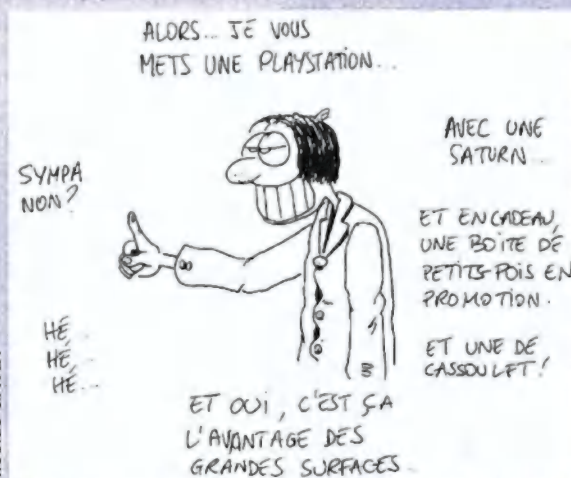 ALORS... JE VOUS
METS UNE PLAYSTATION...
AVEC UNE
SATURN...
SYMPA
NON?
ET EN CADEAU,
UNE BOÎTE DE
PETITS-POIS EN
PROMOTION.
ET UNE DE
CASSOULET!
HÉ...
HÉ...
HÉ...
ET OUI, C'EST ÇA
L'AVANTAGE DES
GRANDES SURFACES.